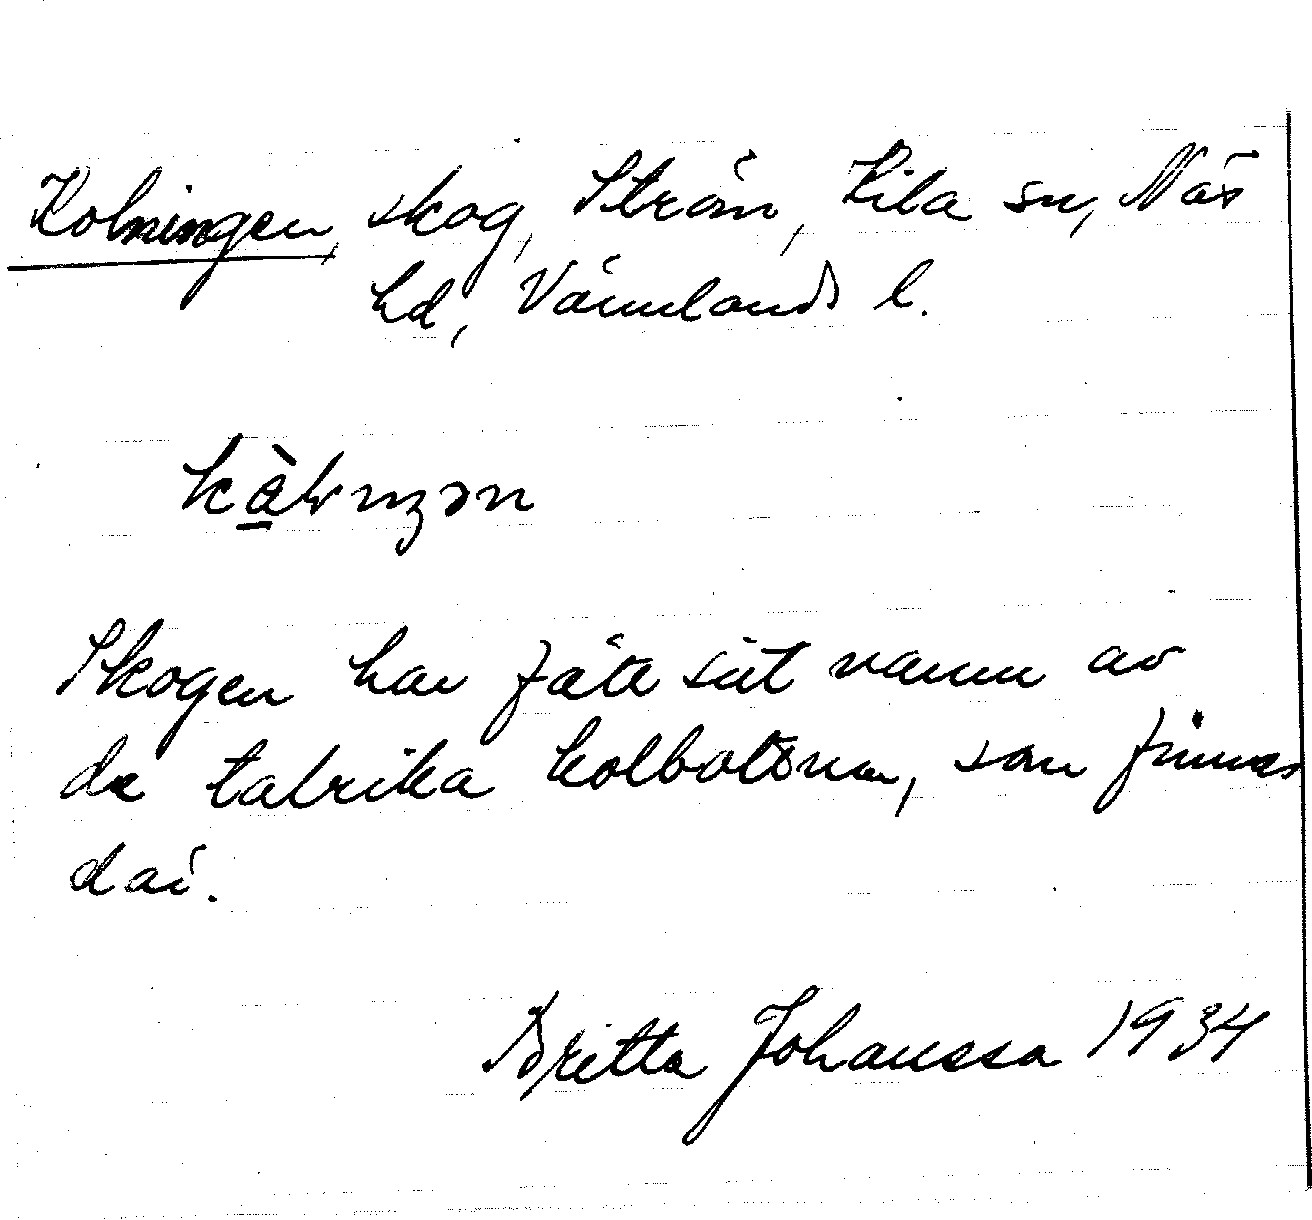 Kolningen, skog, Ström, Kila sn, Näs
hd, Värmlands l.
Skogen har fått sitt namn av
de talrika kolbottnar, som finnas
där.
Britta Johansson 1934